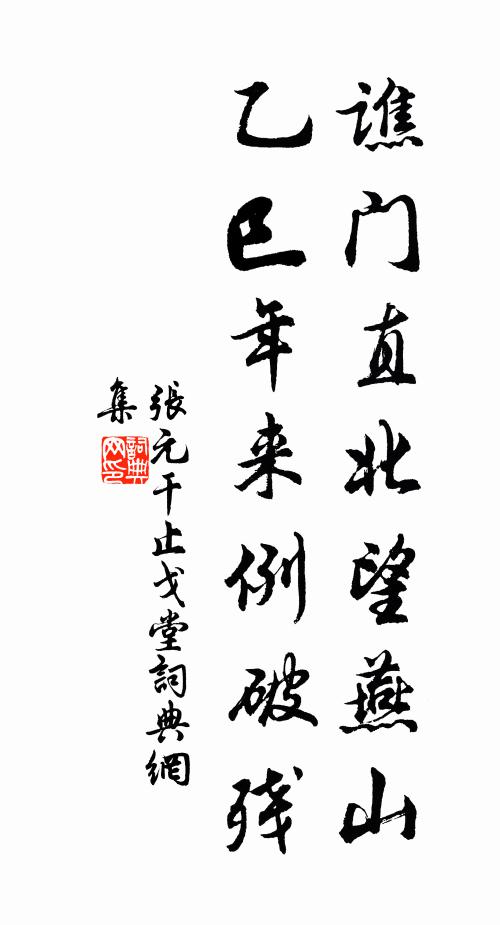 譙门直北望燕山
乙巳年来例破残
張元干止戈堂詞典網
集
詞典网印